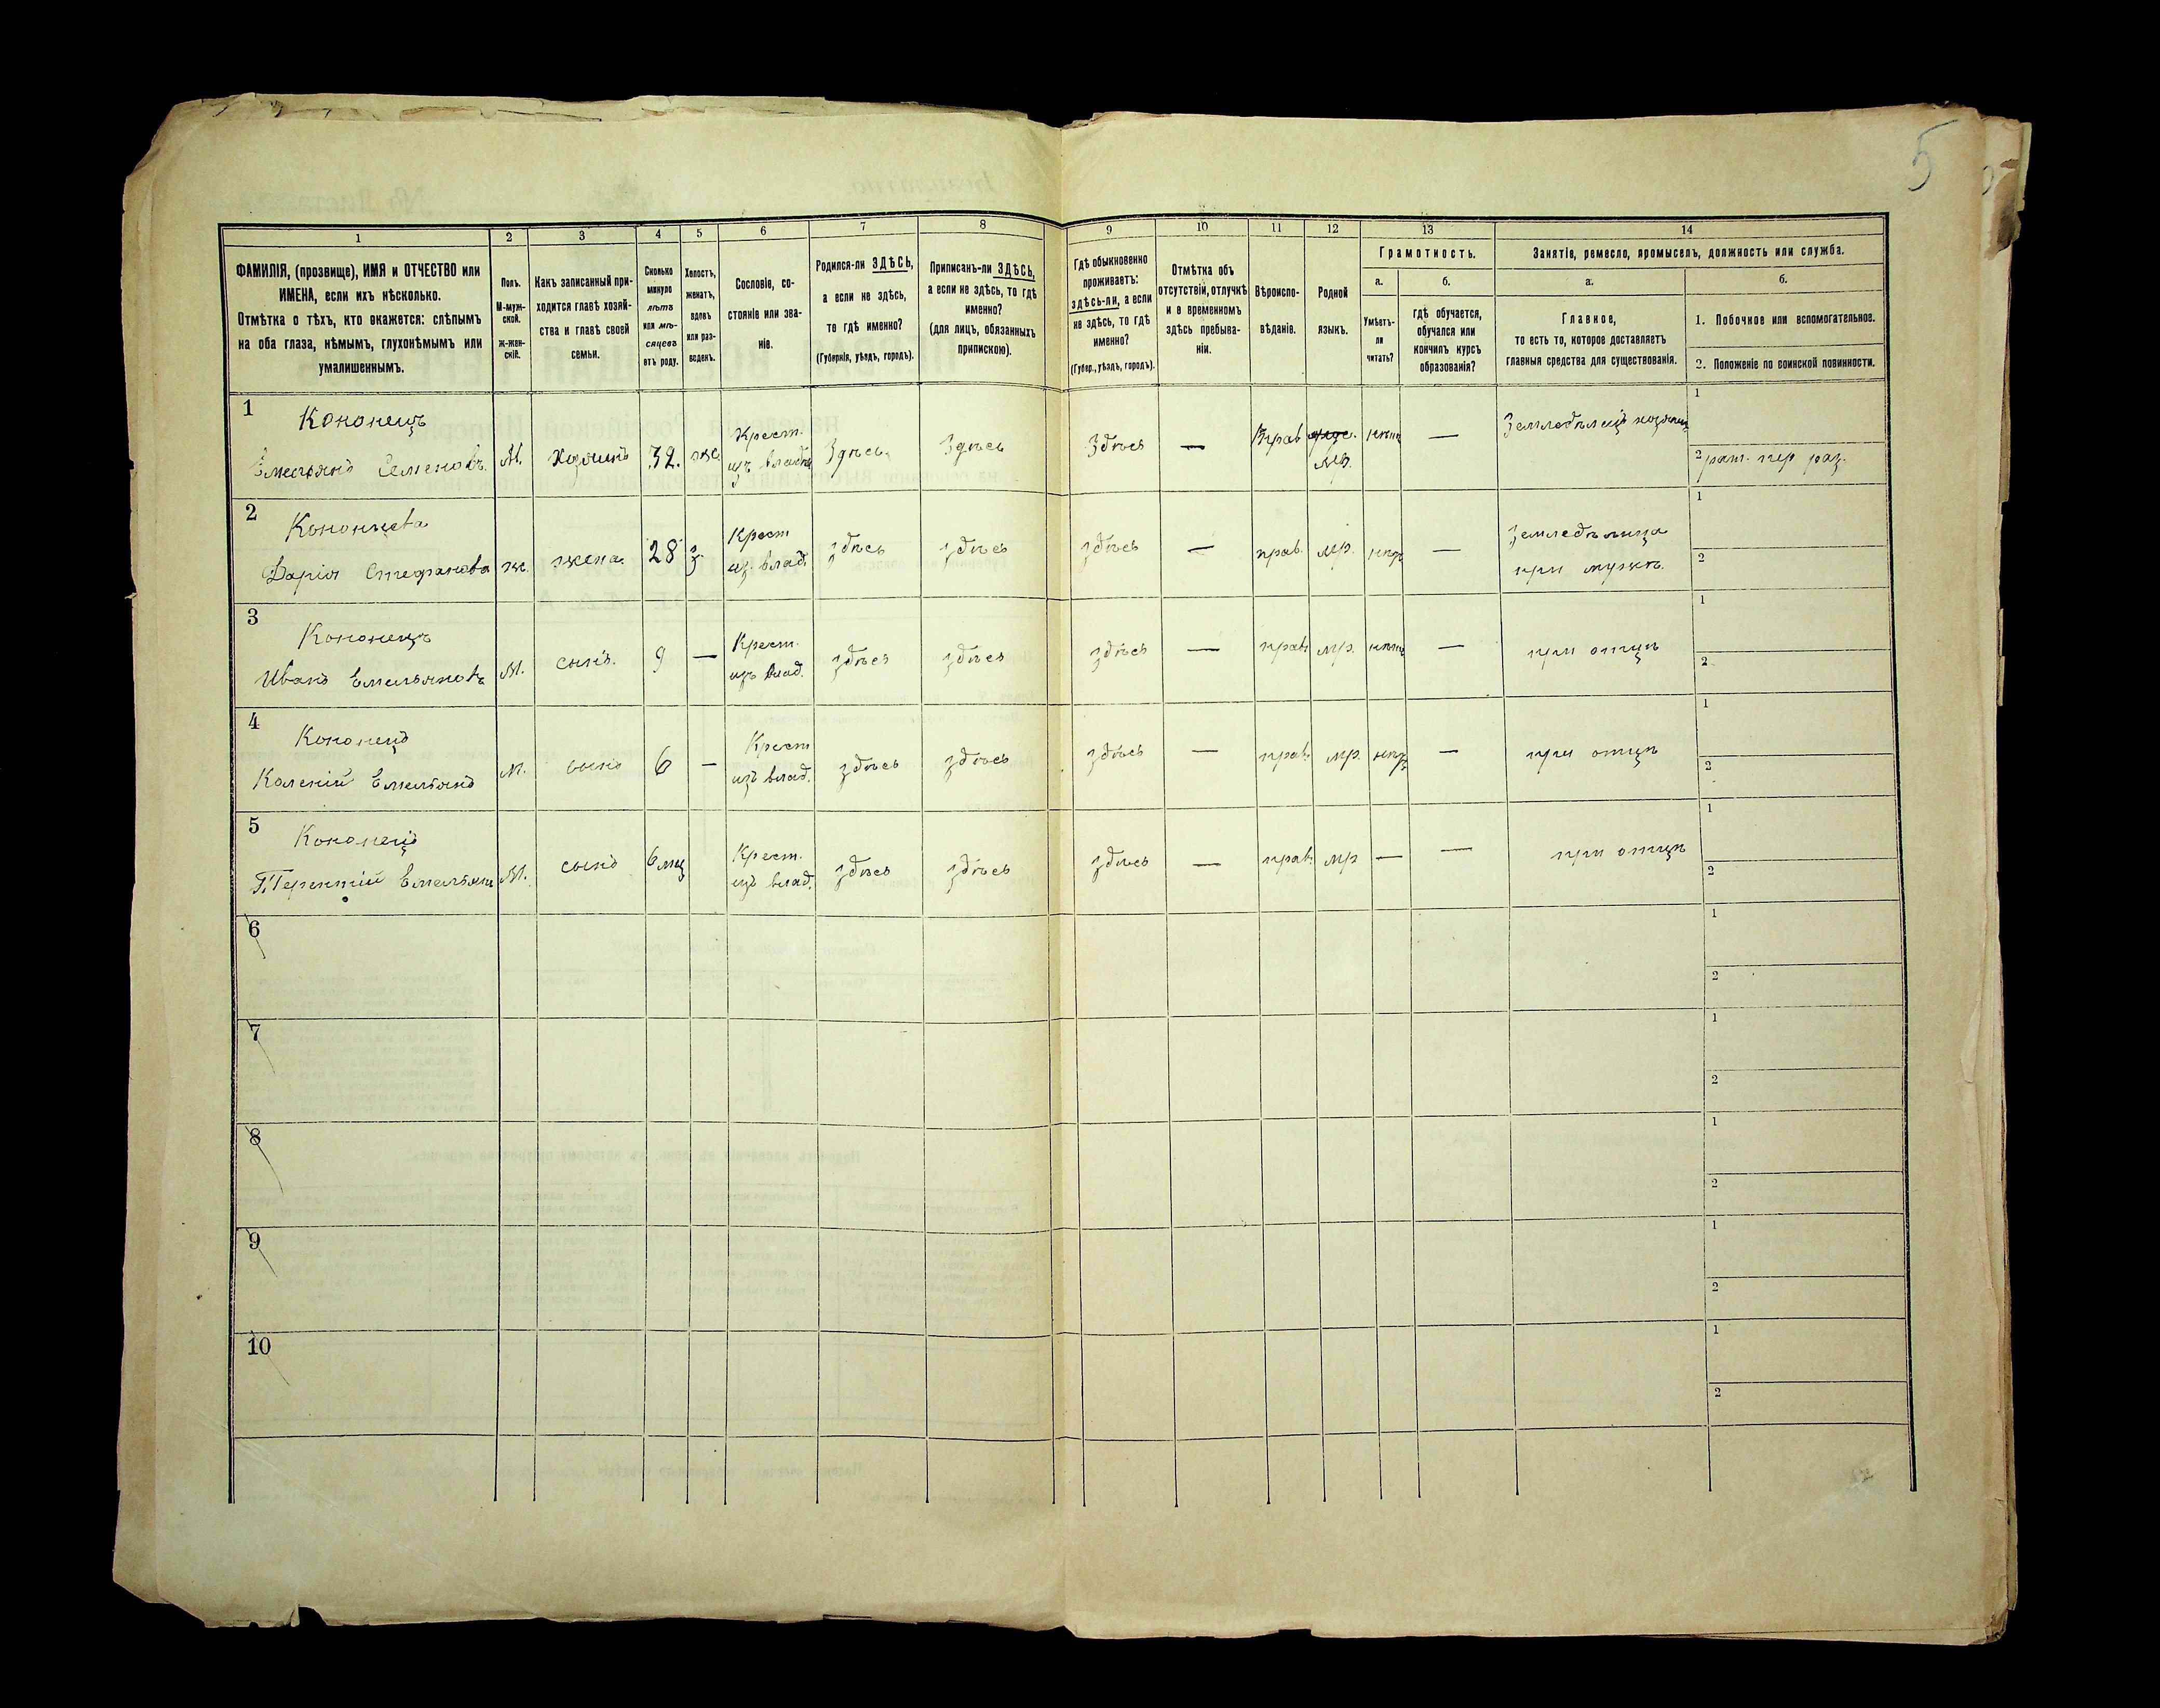 5
1 2 3 4 5 6 7 8 9 10 11 12 13 14
ФАМИЛІЯ, (прозвище), ИМЯ и ОТЧЕСТВО или
ИМЕНА, если ихъ нѣсколько.
Отмѣтка о тѣхъ, кто окажется: слѣпымъ
на оба глаза, нѣмымъ, глухонѣмымъ или
умалишеннымъ.
Полъ.
М-муж-
ской.
ж-жен-
скій.
Какъ записанный при-
ходится главѣ хозяй-
ства и главѣ своей
семьи.
Сколько
минуло
лѣтъ
или мѣ-
сяцевъ
отъ роду.
Холостъ,
женатъ,
вдовъ
или раз-
веденъ.
Сословіе, со-
стояніе или зва-
ніе.
Родился-ли ЗДѢСЬ,
а если не здѣсь,
то гдѣ именно?
(Губернія, уѣздъ, городъ).
Приписанъ-ли ЗДѢСЬ,
а если не здѣсь, то гдѣ
именно?
(для лицъ, обязанныхъ
припискою).
Гдѣ обыкновенно
проживаетъ:
здѣсь-ли, а если
не здѣсь, то гдѣ
именно?
(Губер., уѣздъ, городъ).
Отмѣтка объ
отсутствіи, отлучкѣ
и о временномъ
здѣсь пребыва-
ніи.
Вѣроиспо-
вѣданіе.
Родной
языкъ.
Грамотность.
а.
Умѣетъ-
ли
читать?
б.
гдѣ обучается,
обучался или
кончилъ курсъ
образованія?
Занятіе, ремесло, промыселъ, должность или служба.
а.
Главное,
то есть то, которое доставляетъ
главныя средства для существованія.
б.
1. Побочное или вспомогательное.
2. Положеніе по воинской повинности.
1
Кононецъ
Емельянъ Семеновъ. М. Хозяинъ 32. же Крест. изъ влад. Здѣсь. Здѣсь Здѣсь — Прав мр. нѣтъ — Земледѣлецъ хозяинъ
1
2 рат. пер раз.
2
Кононцева
Дарія Стефанова ж. жена. 28 з. Крест из. влад. здѣсь здѣсь здѣсь — прав. мр. нѣтъ — Земледѣлица
при мужѣ.
1
2
3
Кононецъ
Иванъ Емельяновъ М. сынъ. 9 — Крест. изъ влад. здѣсь здѣсь здѣсь — прав. мр. нѣтъ — при отцѣ
1
2
4
Кононецъ
Емельянъ м. сынъ 6 — Крест изъ влад. здѣсь здѣсь здѣсь — прав. мр. нѣтъ — при отцѣ
1
2
5
Кононецъ
Терентій Емельян М. сынъ 6 мц Крест. изъ влад. здѣсь здѣсь здѣсь — прав. мр — — при отцѣ
1
2
6
1
2
7
1
2
8
1
2
9
1
2
10
1
2